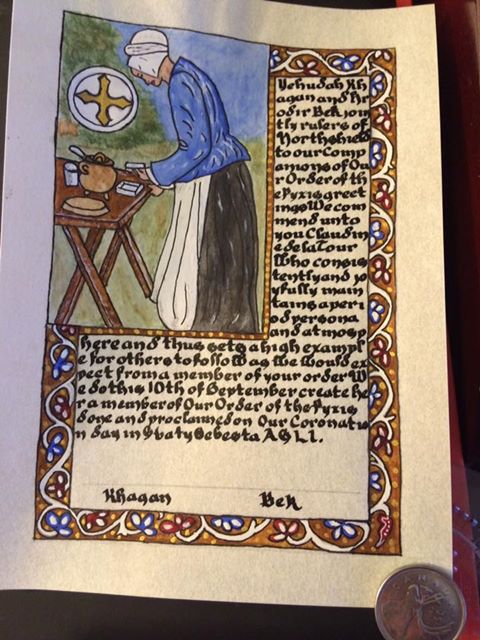 Yehudah Kh
agan and Ar
odir Bek join
tly rulers of
Northshield
to our Comp
anions of Ou
r Order of th
e Pyxis greet
ings We com
mend unto
you Claudin
e de la Tour
Who consis
tently and jo
yfully main
tains a peri
od persona
and atmosp
here and thus sets a high exampl
e for others to follow as We would ex
pect from a member of your order W
e do this 10th of September create he
r a member of Our Order of the Pyxis
done and proclaimed on Our Coronatio
n day in Shaty Bebesta AS LI.
Khagan Bek
CANADA